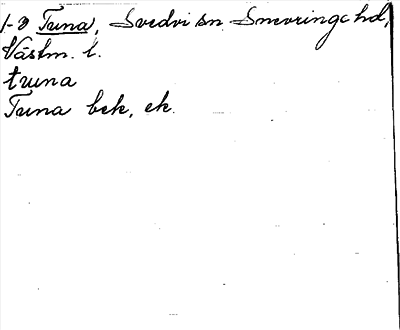 1-2 Tuna, Svedvi sn Snevringe hd,
Västm. l.
tuna
Tuna bek, ek.